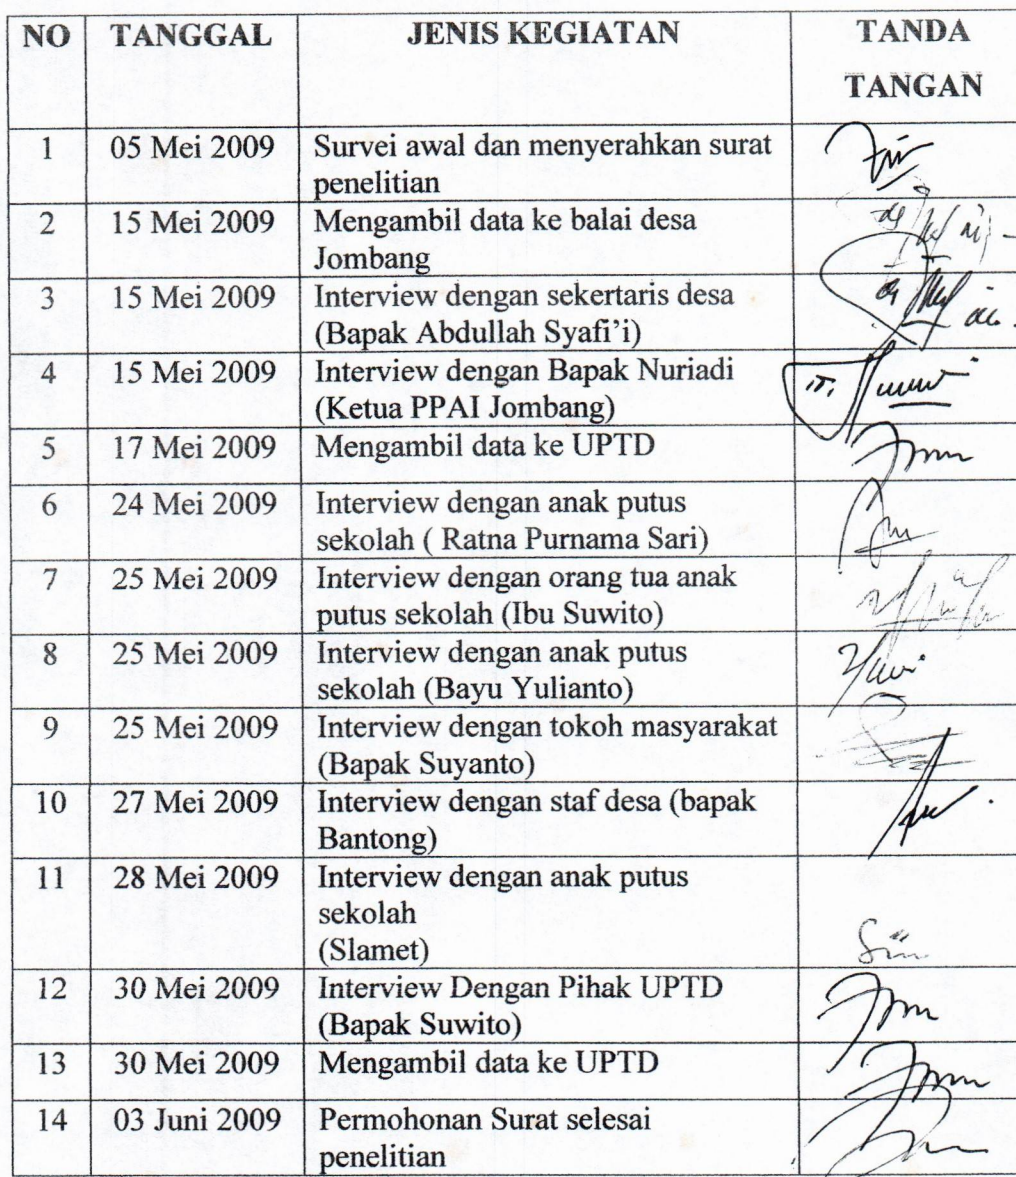 NO TANGGAL JENIS KEGIATAN TANDA
TANGAN
1 05 Mei 2009 Survei awal dan menyerahkan surat
penelitian
2 15 Mei 2009 Mengambil data ke balai desa
Jombang
3 15 Mei 2009 Interview dengan sekertaris desa
(Bapak Abdullah Syafi'i)
4 15 Mei 2009 Interview dengan Bapak Nuriadi
(Ketua PPAI Jombang)
5 17 Mei 2009 Mengambil data ke UPTD
6 24 Mei 2009 Interview dengan anak putus
sekolah ( Ratna Purnama Sari)
7 25 Mei 2009 Interview dengan orang tua anak
putus sekolah (Ibu Suwito)
8 25 Mei 2009 Interview dengan anak putus
sekolah (Bayu Yulianto)
9 25 Mei 2009 Interview dengan tokoh masyarakat
(Bapak Suyanto)
10 27 Mei 2009 Interview dengan staf desa (bapak
Bantong)
11 28 Mei 2009 Interview dengan anak putus
sekolah
(Slamet)
12 30 Mei 2009 Interview Dengan Pihak UPTD
(Bapak Suwito)
13 30 Mei 2009 Mengambil data ke UPTD
14 03 Juni 2009 Permohonan Surat selesai
penelitian